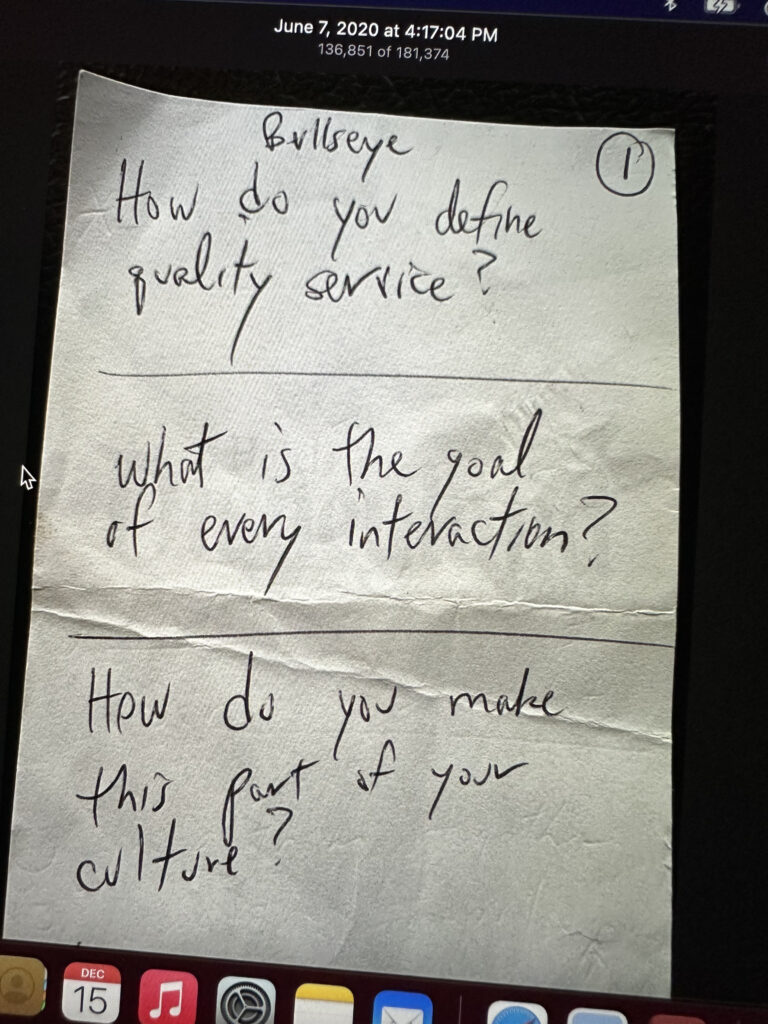 June 7, 2020 at 4:17:04 PM
136,851 of 181,374
Bullseye
1
How do you define
quality service?
what is the goal
of every interaction?
How do you make
this part of your
culture?
DEC
15